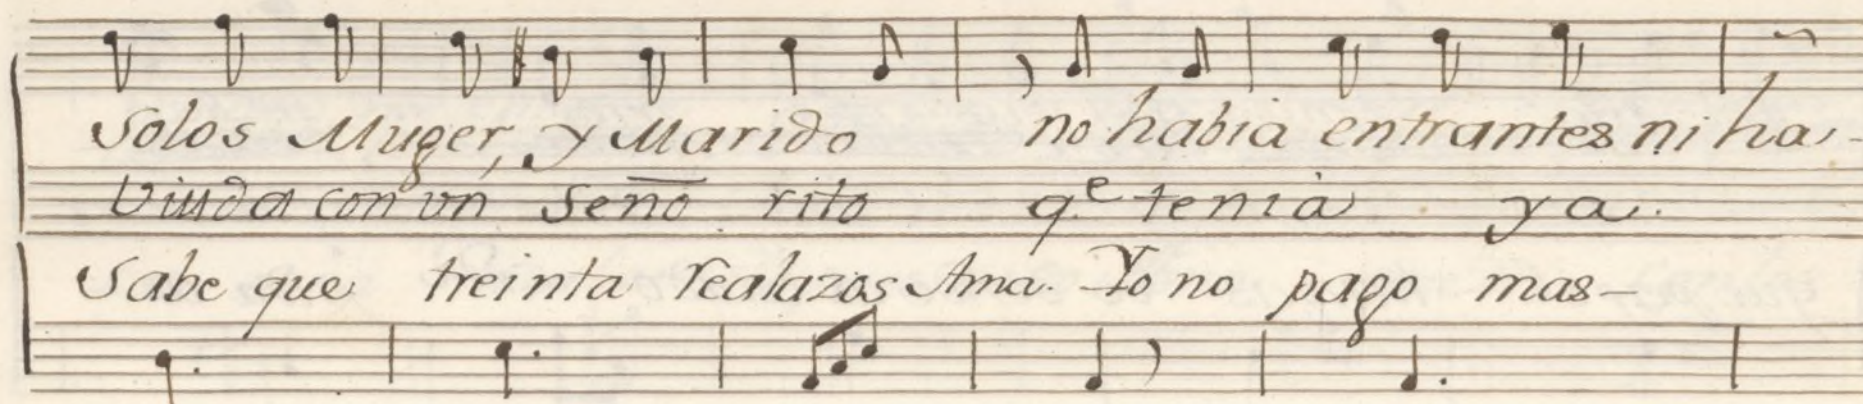 Solos Muger, y Marido no habia entrantes ni ha-
Viuda con un Seño rito q.e tenia ya.
Sabe que treinta realazos Ama. Yo no pago mas-